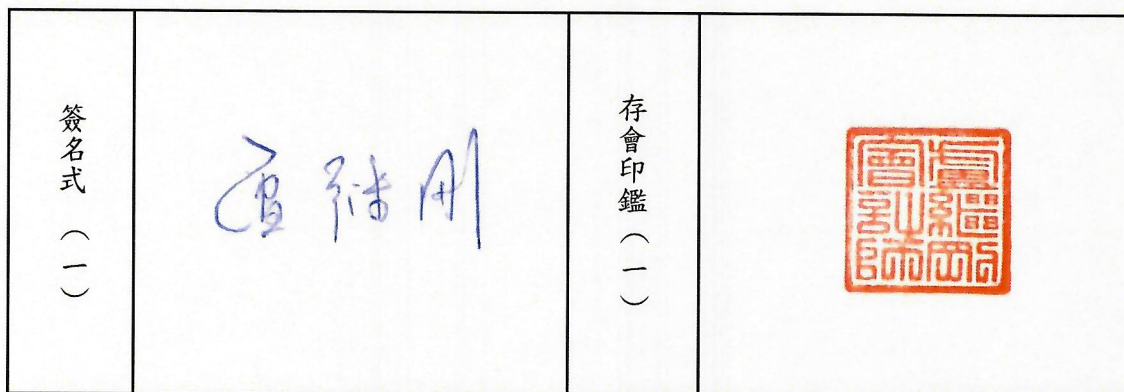 簽名式（一）
盧繼剛
存會印鑑（一）
盧繼剛
會計師